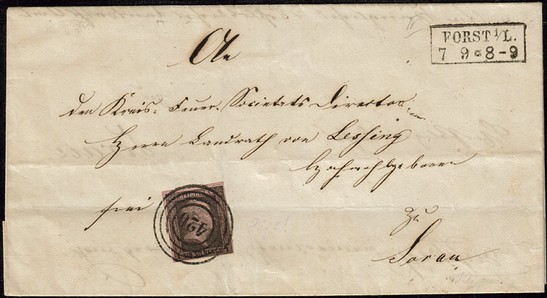 FORST i/L.
7 9 * 8-9
An
den Kreis-Feuer-Societäts Director
Herrn Landrath von Lessing
Hochwohlgeboren
frei
zu
Sorau
424